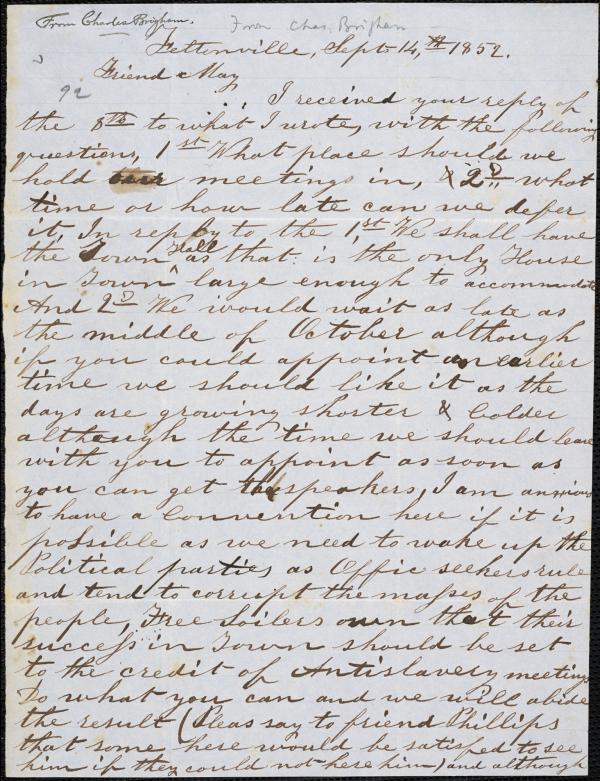 From Charles Brigham.
From Chas. Brigham
Feltonville, Sept 14,th 1852.
Friend May
92
I received your reply of
the 8th to what I wrote, with the following
questions, 1st What place should we
hold meetings in, & 2d what
time or how late can we defer
it, In reply to the 1st We shall have
the Town Hall as that is the only House
in Town large enough to accommodate
And 2d We would wait as late as
the middle of October although
if you could appoint an earlier
time we should like it as the
days are growing shorter & Colder
although the time we should leave
with you to appoint as soon as
you can get the speakers, I am anxious
to have a Convention here if it is
possible as we need to wake up the
Political parties as Offic seekers rule
and tend to corrupt the masses of the
people, Free Soilers own that their
success in Town should be set
to the credit of Antislavery meetings
Do what you can and we will abide
the result (Pleas say to friend Phillips
that some here would be satisfied to see
him if they could not here him) and although